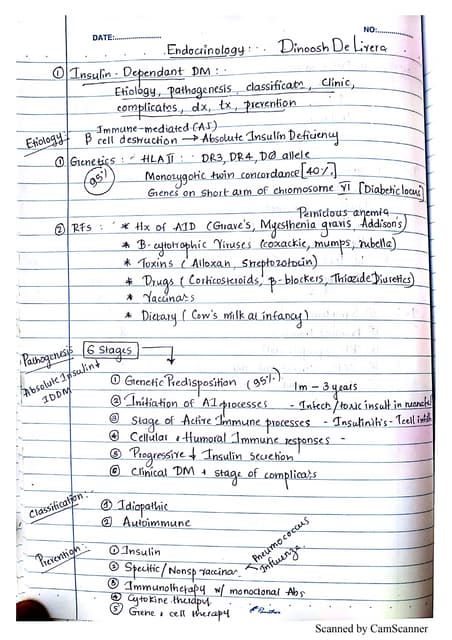 DATE:................ NO:..............
Endocrinology :- Dinoosh De Livera
① Insulin - Dependant DM :-
Etiology, pathogenesis, classificatn, Clinic,
complicates, dx, tx, prevention
Etiology: Immune-mediated (AI)
β cell destruction → Absolute Insulin Deficiency
① Genetics :- HLA II :- DR3, DR4, DQ allele
95% Monozygotic twin concordance [40%]
Genes on short arm of chromosome VI [Diabetic locus]
Pernicious anemia
② RFs :- * Hx of AID (Grave's, Myesthenia gravis, Addison's)
* B-cytotrophic Viruses (coxackie, mumps, rubella)
* Toxins (Alloxan, Streptozotocin)
* Drugs (Corticosteroids, β-blockers, Thiazide Diuretics)
* Vaccinats
* Dietary (Cow's milk at infancy)
Pathogenesis 6 Stages
Absolute Insulin↓
IDDM
① Genetic Predisposition (95%) 1m - 3 years
② Initiation of AI processes - Infectn / toxic insult in
③ Stage of Active Immune processes - Insulinitis - Tcell
④ Cellular & Humoral Immune responses -
⑤ Progressive ↓ Insulin Secretion
⑥ Clinical DM & stage of complicats
Classification:- ① Idiopathic
② Autoimmune
Prevention:- ① Insulin
② Specific / Nonsp vaccinat Pneumococcus Influenza
③ Immunotherapy w/ monoclonal Abs
④ Cytokine therapy
⑤ Gene & cell therapy
Scanned by CamScanner